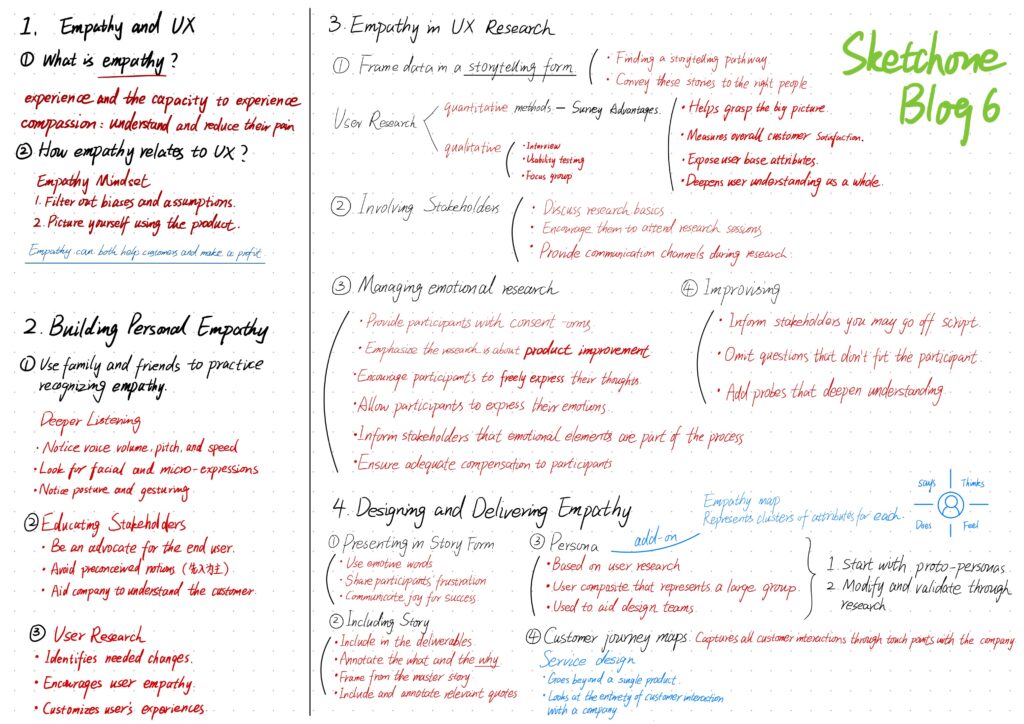 1. Empathy and UX
① What is empathy?
experience and the capacity to experience
compassion: understand and reduce their pain
② How empathy relates to UX?
Empathy Mindset
1. Filter out biases and assumptions.
2. Picture yourself using the product.
Empathy can both help customers and make a profit.
2. Building Personal Empathy
① Use family and friends to practice
recognizing empathy.
Deeper Listening
• Notice voice volume, pitch, and speed
• Look for facial and micro-expressions
• Notice posture and gesturing.
② Educating Stakeholders
• Be an advocate for the end user.
• Avoid preconceived notions (先入为主)
• Aid company to understand the customer.
③ User Research
• Identifies needed changes.
• Encourages user empathy.
• Customizes user's experiences.
3. Empathy in UX Research
① Frame data in a storytelling form
• Finding a storytelling pathway.
• Convey these stories to the right people
User Research
quantitative methods — Survey Advantages.
• Helps grasp the big picture.
• Measures overall customer satisfaction.
• Expose user base attributes.
• Deepens user understanding as a whole.
qualitative
• Interview
• Usability testing
• Focus group
② Involving Stakeholders
• Discuss research basics
• Encourage them to attend research sessions
• Provide communication channels during research.
③ Managing emotional research
• Provide participants with consent -orms.
• Emphasize the research is about product improvement
• Encourage participants to freely express their thoughts.
• Allow participants to express their emotions.
• Inform stakeholders that emotional elements are part of the process
• Ensure adequate compensation to participants
④ Improvising
• Inform stakeholders you may go off script.
• Omit questions that don't fit the participant.
• Add probes that deepen understanding.
4. Designing and Delivering Empathy
① Presenting in Story Form
• Use emotive words
• Share participants' frustration
• Communicate joy for success
② Including Story
• Include in the deliverables
• Annotate the what and the why
• Frame from the master story
• Include and annotate relevant quotes
③ Persona
add-on
Empathy map
Represents clusters of attributes for each.
Says
Thinks
Does
Feel
• Based on user research
• User composite that represents a large group.
• Used to aid design teams
1. Start with proto-personas.
2. Modify and validate through
research.
④ Customer journey maps. Captures all customer interactions through touch points with the company
Service design
• Goes beyond a single product.
• Looks at the entirety of customer interaction
with a company
Sketchone
Blog 6